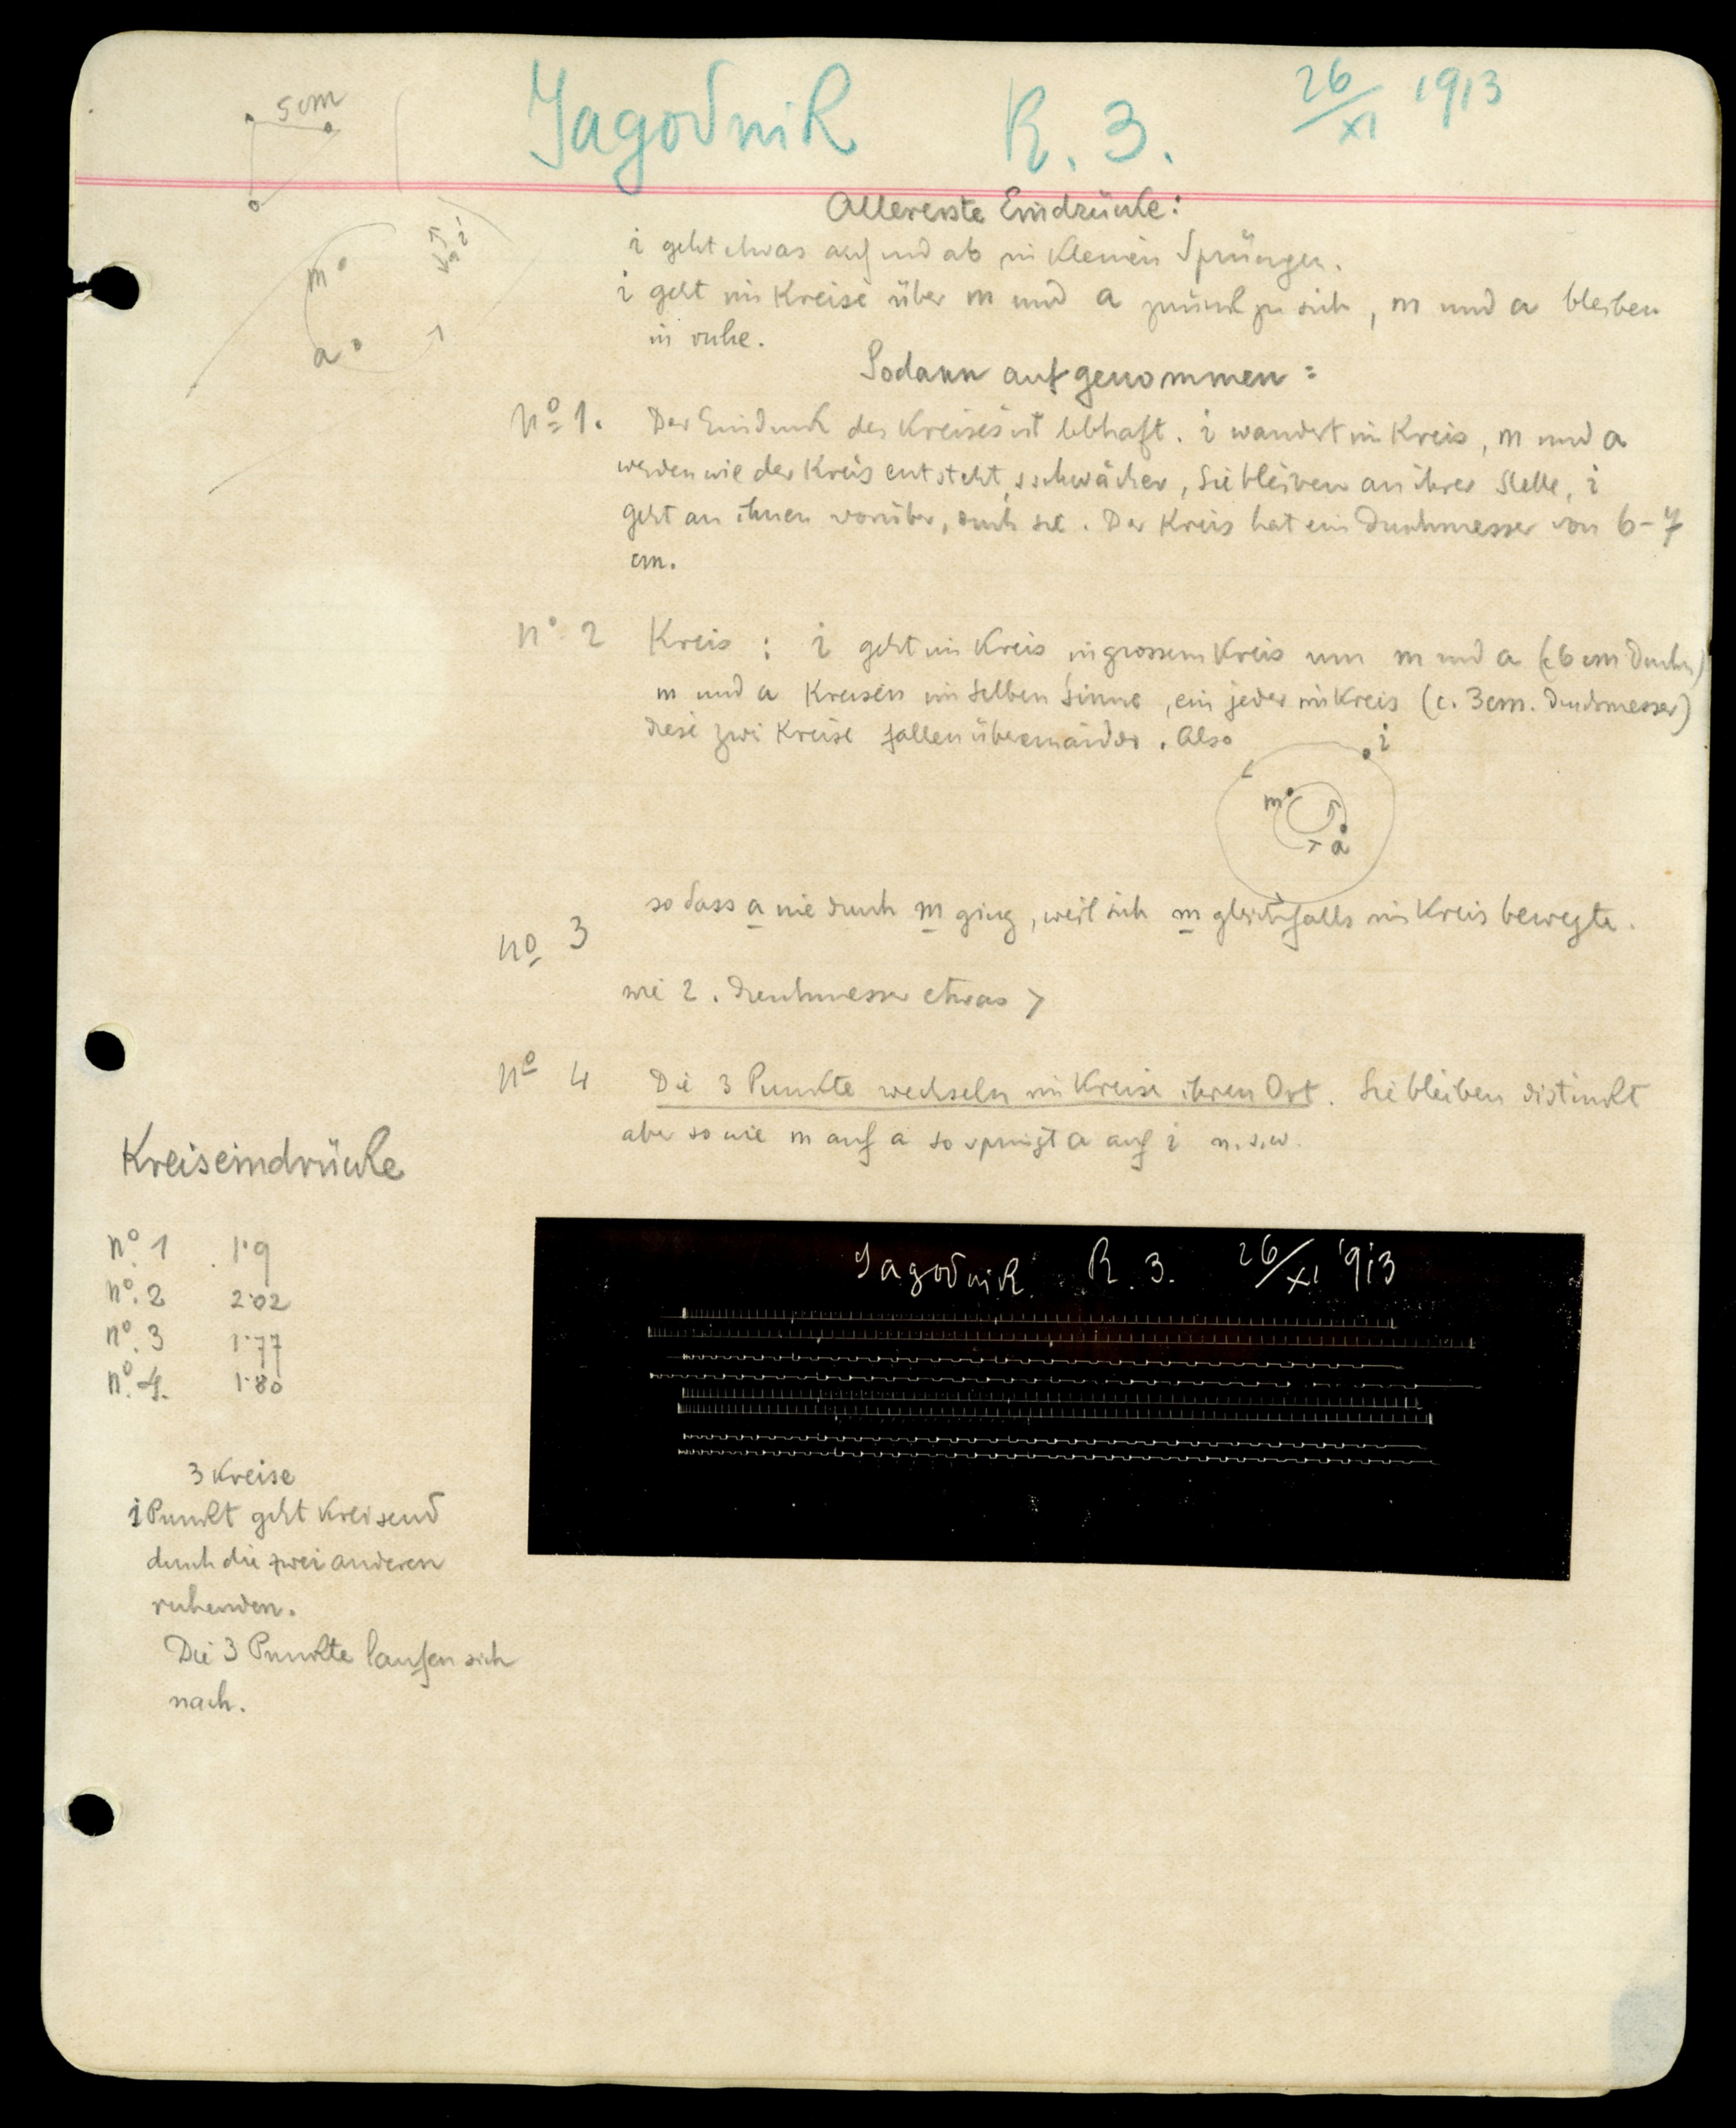 Jagodnik R. 3. 26/XI 1913
5 cm
m
i
a
Allererste Eindrücke:
i geht etwas auf und ab in kleinen Sprüngen.
i geht im Kreise über m und a zurück zu sich, m und a bleiben
in ruhe.
Sodann aufgenommen:
No 1. Der Eindruck des Kreises ist lebhaft. i wandert im Kreis, m und a
werden wie der Kreis entsteht, schwächer, sie bleiben an ihrer Stelle, i
geht an ihnen vorüber, durch sie. Der Kreis hat ein Durchmesser von 6-7
cm.
No 2 Kreis: i geht im Kreis in grossem Kreis um m und a (c 6 cm Durchm)
m und a Kreisen im selben Sinne, ein jeder im Kreis (c. 3 cm. Durchmesser)
diese zwei Kreise fallen übereinander. Also
i
m
a
so dass a nie durch m ging, weil sich m gleichfalls im Kreis bewegte.
No 3
wie 2. Durchmesser etwas >
No 4 Die 3 Punkte wechseln im Kreise ihren Ort. Sie bleiben distinkt
aber so wie m auf a so springt a auf i u.s.w.
Kreiseindrücke
No. 1 1·9
No. 2 2·02
No. 3 1·77
No. 4. 1·80
Jagodnik R. 3. 26/XI 1913
3 Kreise
i Punkt geht kreisend
durch die zwei anderen
ruhenden.
Die 3 Punkte laufen sich
nach.